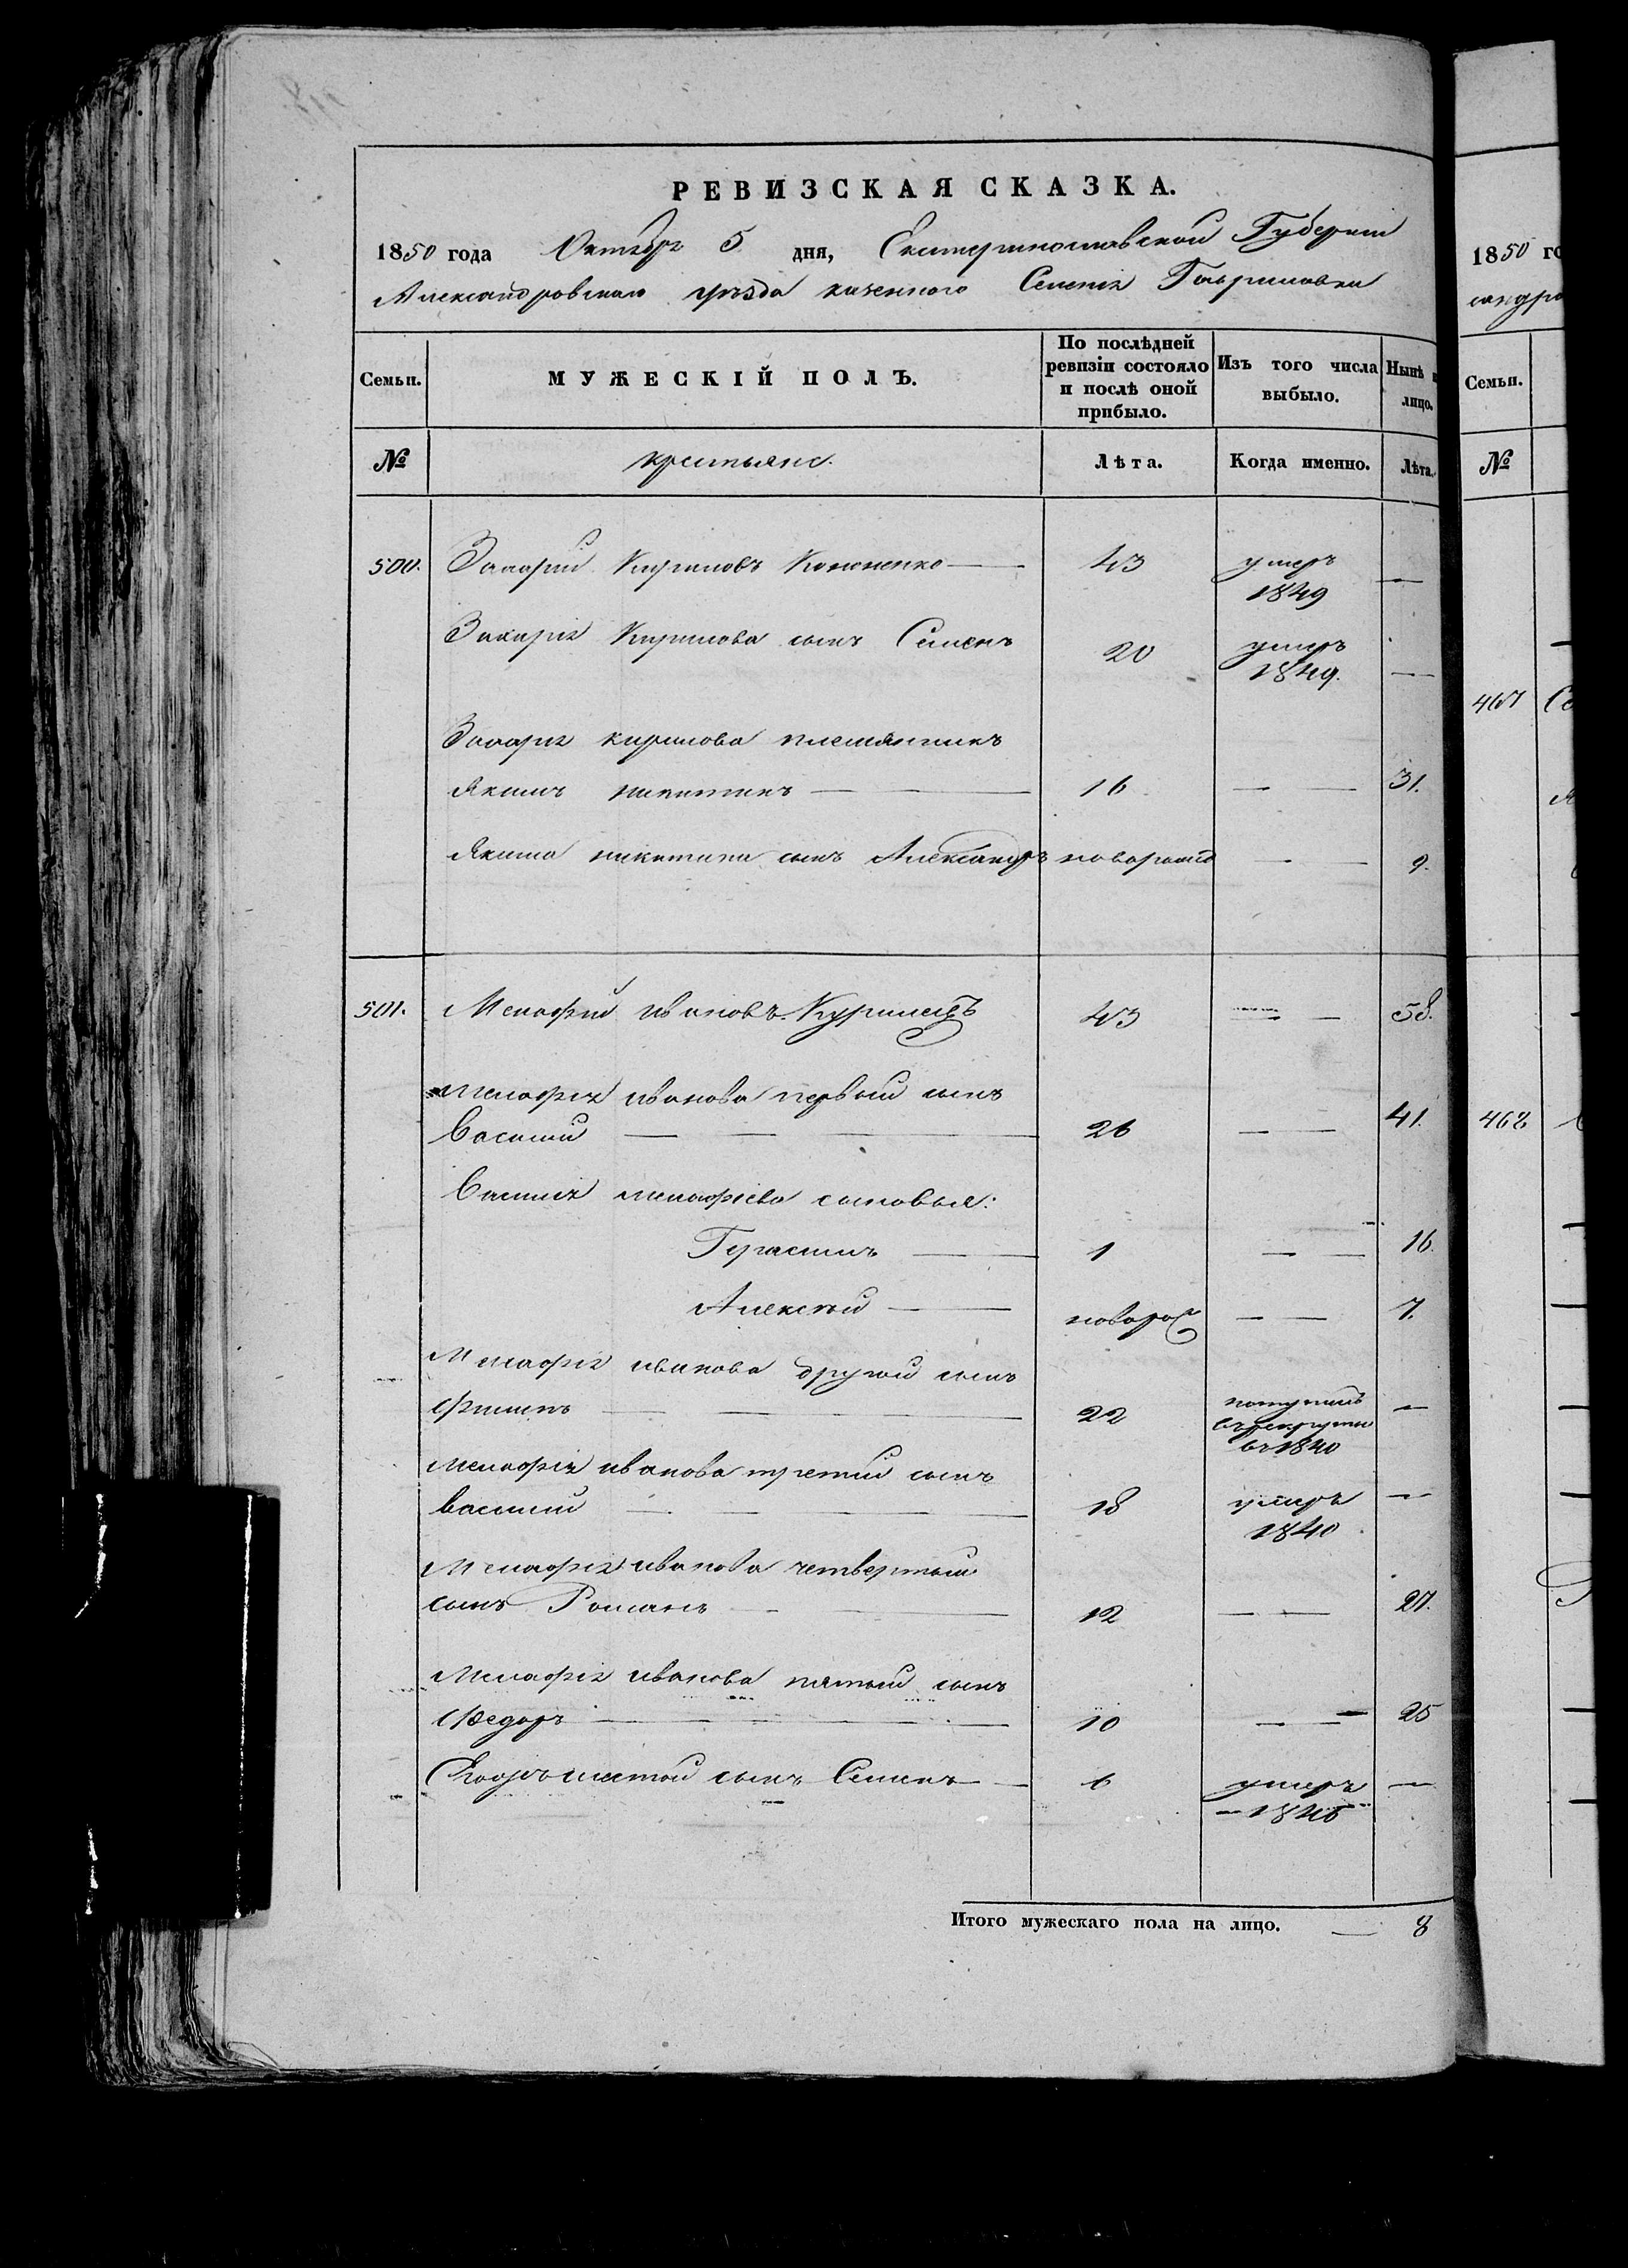 РЕВИЗСКАЯ СКАЗКА.
1850 года Октября 5 дня, Екатеринославской Губернии
Александровскаго уѣзда казеннаго Селенія Гавриловки
Семьи.
МУЖЕСКІЙ ПОЛЪ.
По послѣдней ревизіи состояло и послѣ оной прибыло.
Изъ того числа выбыло.
Нынѣ
лицо.
№
крестьяне.
Лѣта.
Когда именно.
Лѣта.
500. Захарій Кириловъ Кононенко — 43 умеръ 1849 —
Захарія Кирилова сынъ Семенъ 20 умеръ 1849. —
Захарія кирилова племянникъ
Якимъ никитинъ — — 16 — — 31.
Якима никитина сынъ Александръ новорожд — — 9.
501. Мелафій ивановъ Курилецъ 43 — — 58.
Мелафія иванова первый сынъ
Василій — — — — 26 — — 41.
Василія мелафіева сыновья:
Герасимъ — 1 — — 16.
Алексѣй — новорож — — 7.
Мелафія иванова другой сынъ
Филипъ — — — — 22 поступилъ въ рекруты въ 1840 —
Мелафія иванова третій сынъ
василий — — — — 18 умеръ 1840 —
Мелафія иванова четвертый
сынъ Романъ — — 12 — — 27.
Мелафія иванова пятый сынъ
Федоръ — — — — 10 — — 25
шестой сынъ Семенъ — 6 умеръ —
Итого мужескаго пола на лицо. — 8
1850 го
Семьи.
№
467
468